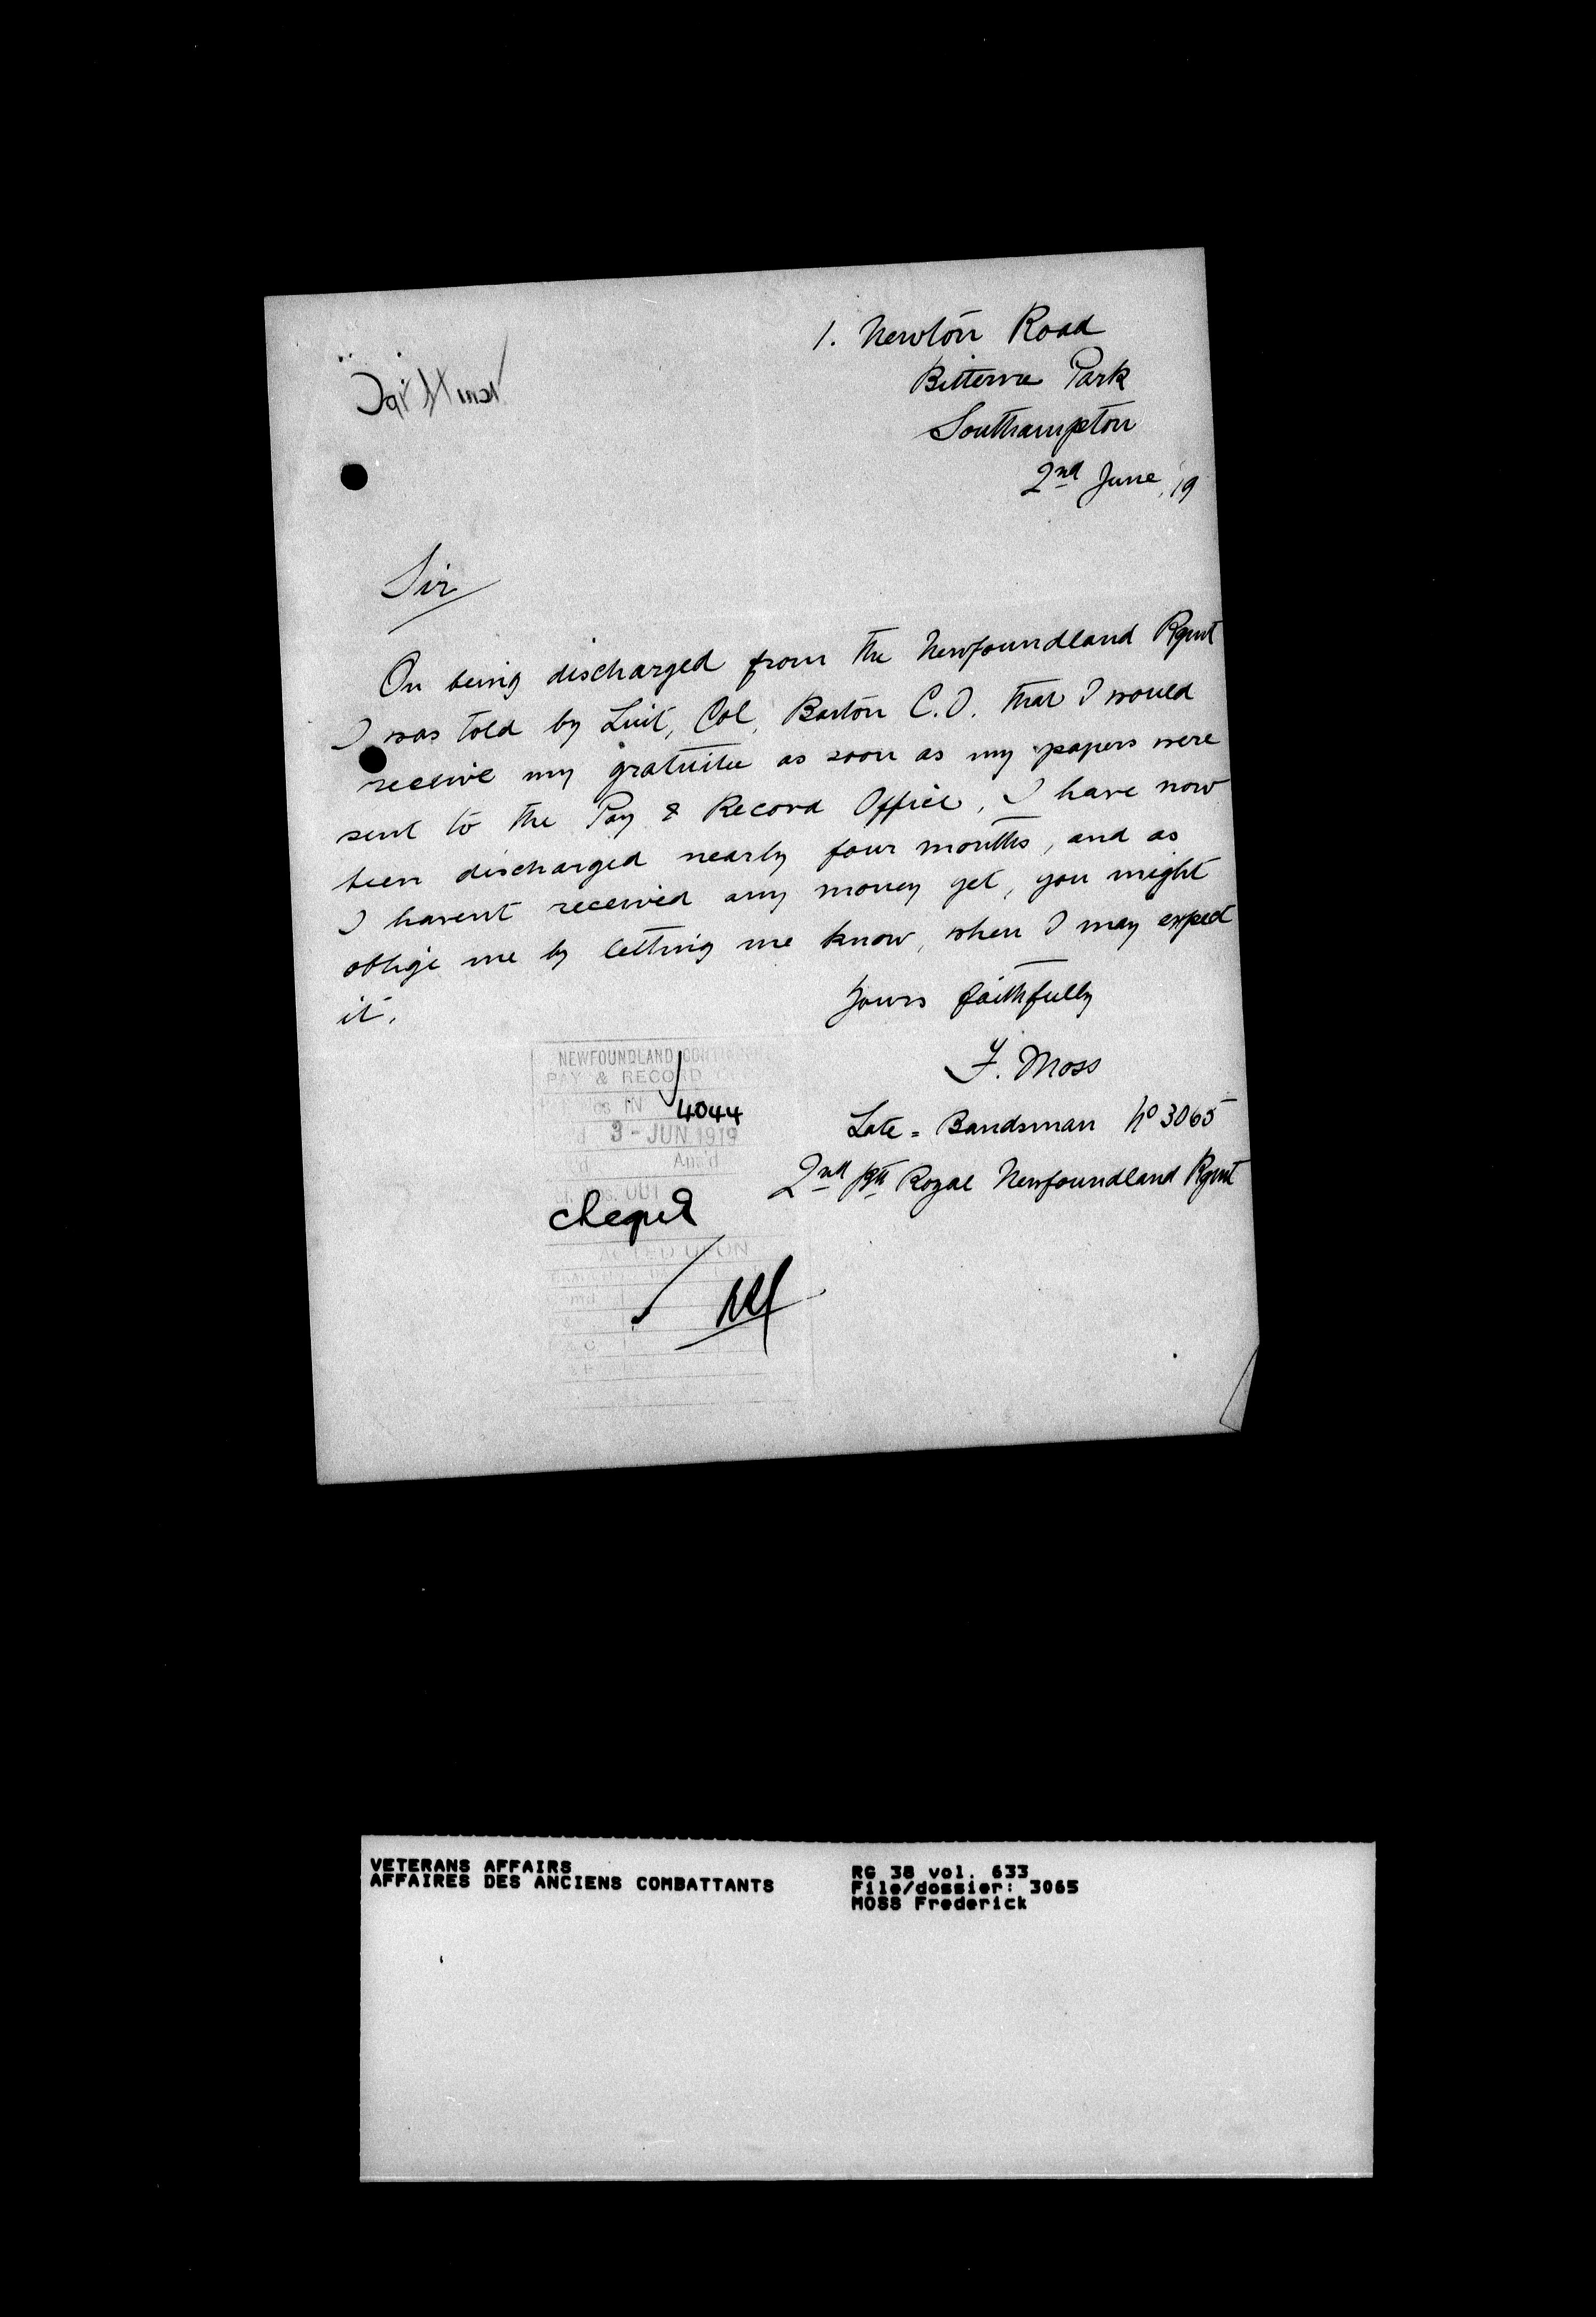 1. Newton Road
Bitterne Park
Southampton
2nd June, 19
Sir
On being discharged from the Newfoundland Rgmt
I was told by Luit, Col, Barton C.O. that I would
receive my gratuitie as soon as my papers were
sent to the Pay & Record Office, I have now
been discharged nearly four months, and as
I havent received any money yet, you might
oblige me by letting me know, when I may expect
it.
Yours faithfully
F. Moss
Late = Bandsman No 3065
2nd Btt Royal Newfoundland Rgmt
NEWFOUNDLAND CONTINGENT
PAY & RECORD
IN 4044
3 - JUN 1919
Ans'd
OUT
cheque
ACTED UPON
VETERANS AFFAIRS
AFFAIRES DES ANCIENS COMBATTANTS
RG 38 vol. 633
File/dossier: 3065
MOSS Frederick